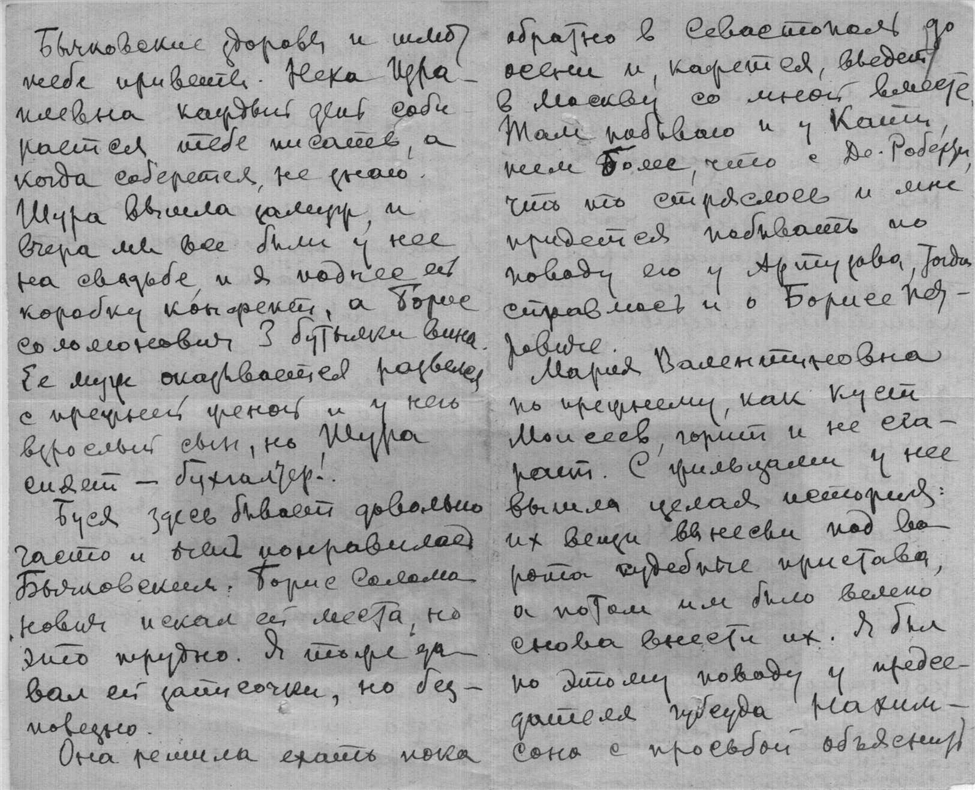 Бычковские здоровы и шлют
тебе приветы. Нека Изра-
илевна каждый день соби-
рается тебе писать, а
когда соберется, не знаю.
Шура вышла замуж, и
вчера мы все были у нее
на свадьбе, и я поднес ей
коробку конфект, а Борис
Соломонович 3 бутылки вина.
Ее муж оказывается развелся
с прежней женой и у него
взрослый сын, но Шура
сияет — бухгалтер!
Буся здесь бывает довольно
часто и понравилась
Бычковским. Борис Соломо
нович искал ей места, но
это трудно. Я тоже да-
вал ей записочки, но без-
полезно.
Она решила ехать пока
обратно в Севастополь до
осени и, кажется, въедет
в Москву со мной вместе.
Там побываю и у Кати,
тем более, что с Де-Роберти
что то стряслось и мне
придется побывать по
поводу его у Артузова, тогда
справлюсь и о Борисе
Мария Валентиновна
по прежнему, как куст
Моисеев, горит и не сго-
рает. С жильцами у нее
вышла целая история:
их вещи вынесли под во-
рота судебные пристава,
а потом им было велено
снова внести их. Я был
по этому поводу у предсе-
дателя губсуда Нахим-
сона с просьбой объяснить